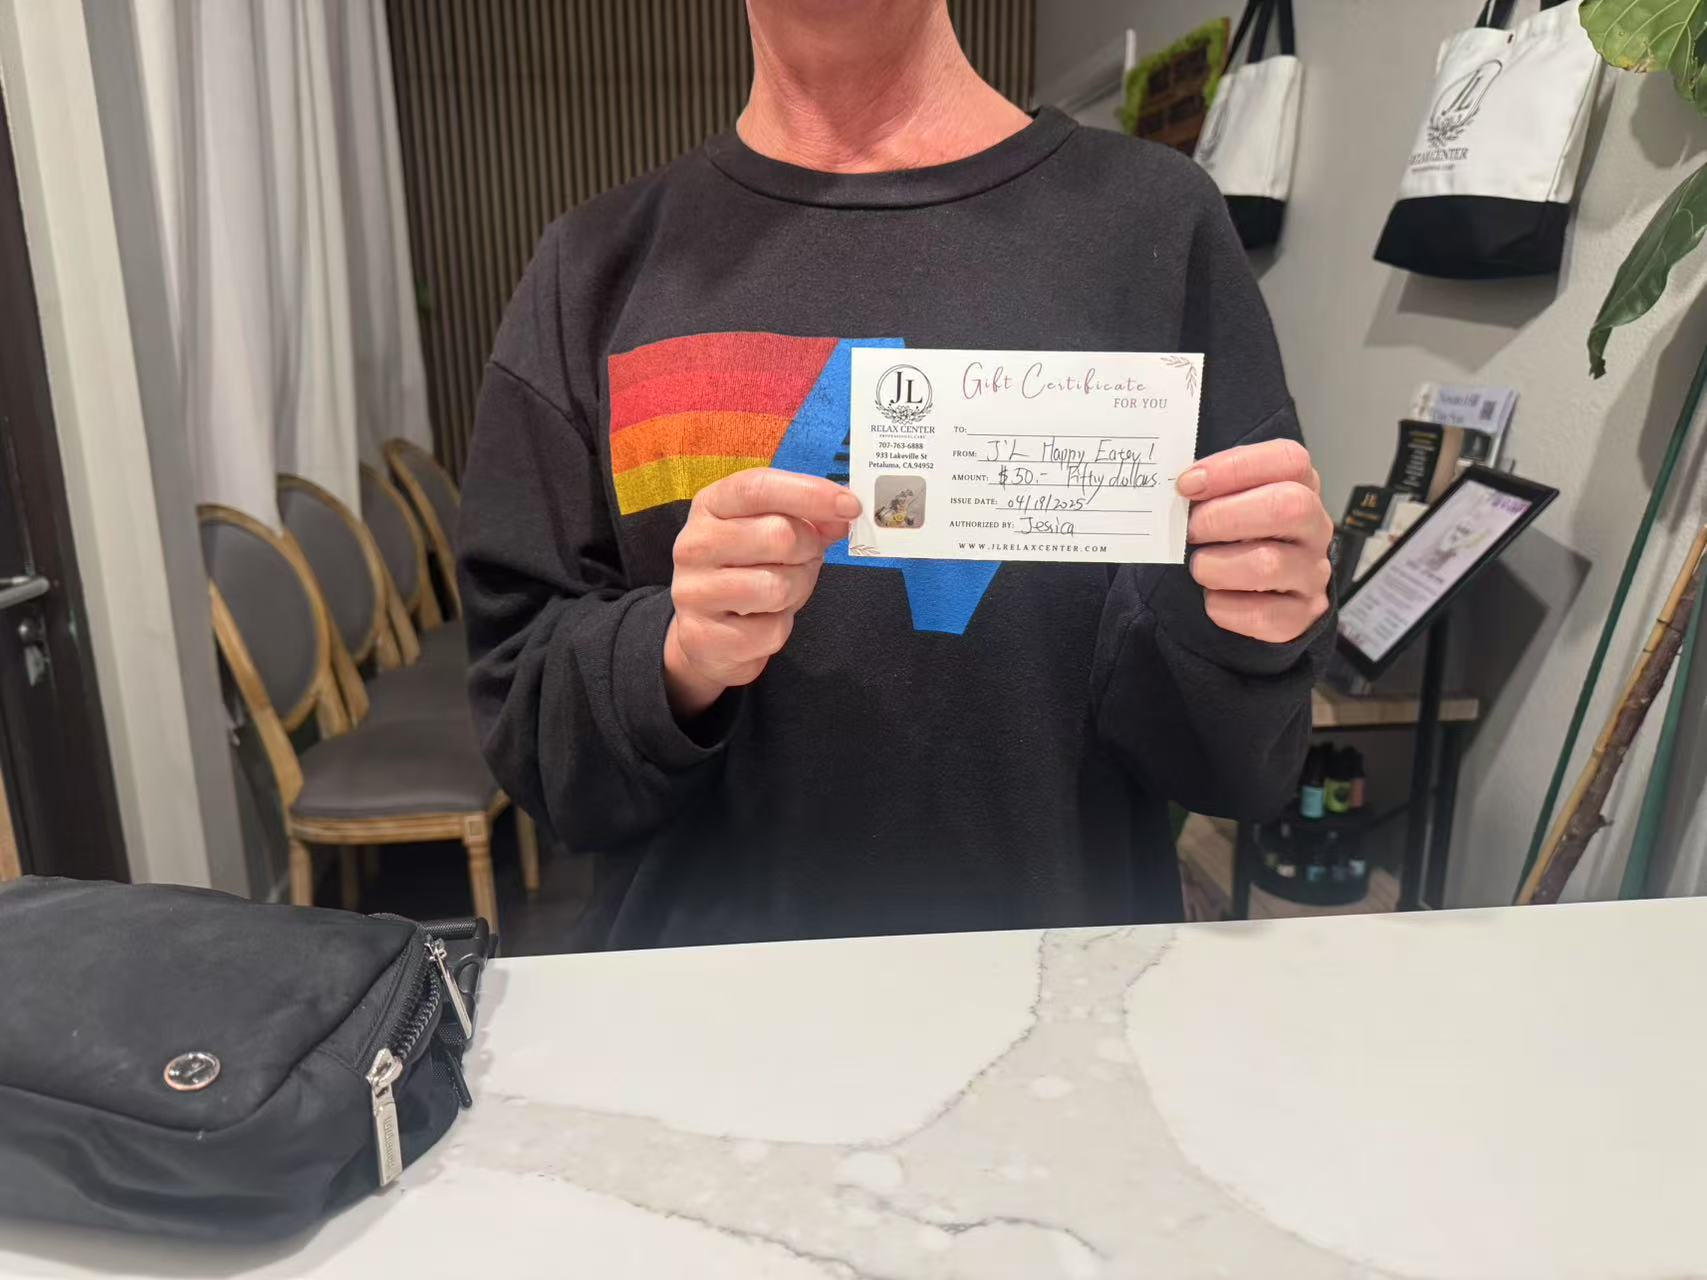 JL
RELAX CENTER
PROFESSIONAL CARE
707-763-6888
933 Lakeville St
Petaluma, CA,94952
Gift Certificate
FOR YOU
TO:
FROM: J'L Happy Eater!
AMOUNT: $50.- Fifty dollars.-
ISSUE DATE: 04/19/2025
AUTHORIZED BY: Jessica
WWW.JLRELAXCENTER.COM
JL
CENTER
JL